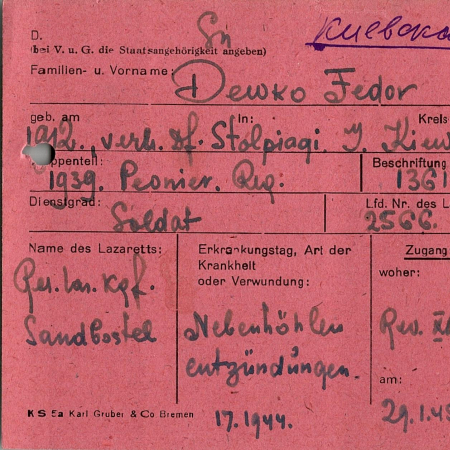 D. Sn Киевска
(bei V. u. G. die Staatsangehörigkeit angeben)
Familien- u. Vorname: Dewko Fedor
geb. am In: Kreis
1912., verh. Df. Stolpiagi. J. Kiew
ppenteil: Beschriftung
1939. Peonier. Reg: 1361
Dienstgrad: Lfd. Nr. des L
Soldat 2566.
Name des Lazaretts: Erkrankungstag, Art der Zugang
Krankheit woher:
oder Verwundung:
Res. Laz. Kgf. Nebenhöhlen Rev.
Sandbostel entzündungen. am:
KS 5a Karl Gruber & Co Bremen 17.1944. 29.1.4